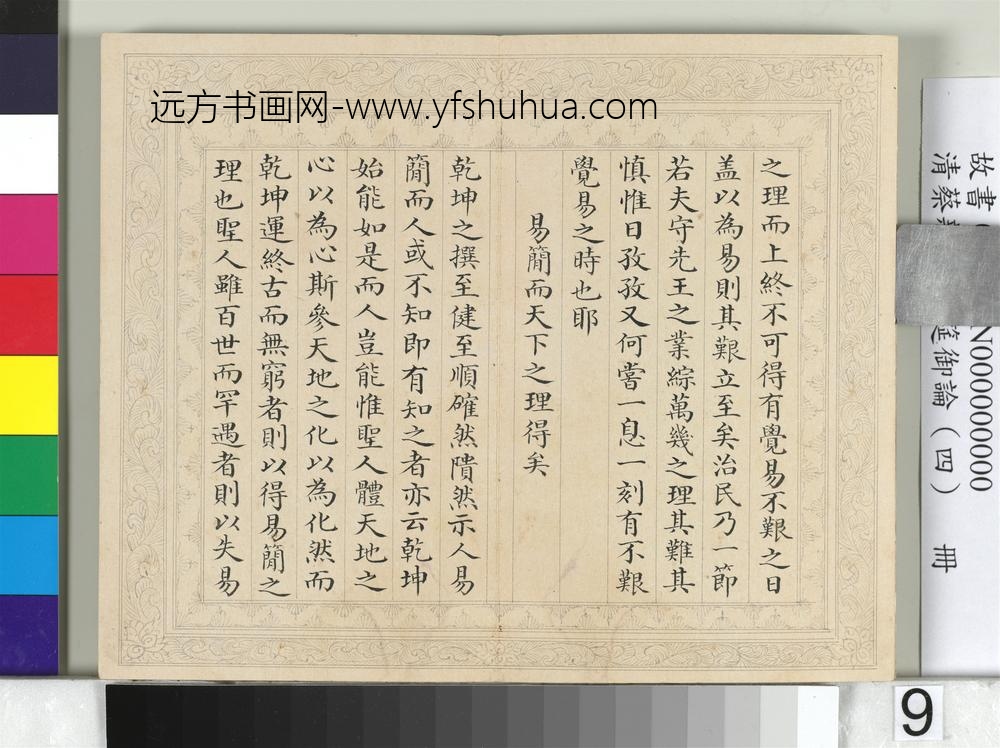 远方书画网-www.yfshuhua.com
之理而上終不可得有覺易不艱之日
盖以為易則其艱立至矣治民乃一節
若夫守先王之業綜萬幾之理其難其
慎惟日孜孜又何嘗一息一刻有不艱
覺易之時也耶
易簡而天下之理得矣
乾坤之撰至健至順確然隤然示人易
簡而人或不知即有知之者亦云乾坤
始能如是而人豈能惟聖人體天地之
心以為心斯參天地之化以為化然而
乾坤運終古而無窮者則以得易簡之
理也聖人雖百世而罕遇者則以失易
故書
N000000000
清蔡
筵御論（四） 冊
9